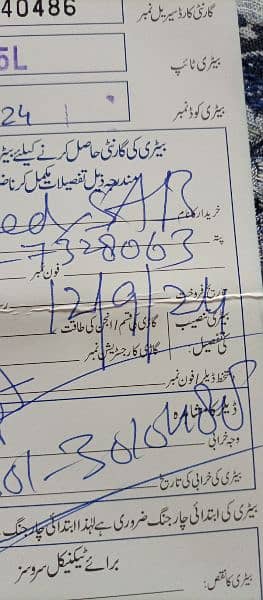 گارنٹی کارڈ سیریل نمبر 40486
بیٹری ٹائپ 5L
بیٹری کوڈ نمبر 24
بیٹری کی گارنٹی حاصل کرنے کیلئے
مندرجہ ذیل تفصیلات مکمل کرنا
خریدار کا نام
پتہ 7328063
فون نمبر
تاریخ فروخت 12/9/24
بیٹری کی تنصیب گاڑی کی قسم / انجن کی طاقت
کی تفصیل: گاڑی کا رجسٹریشن نمبر
دستخط ڈیلر / فون نمبر
وجہ خرابی
بیٹری کی خرابی کی تاریخ
بیٹری کی ابتدائی چارجنگ ضروری ہے لہٰذا ابتدائی چارجنگ
برائے ٹیکنیکل سروسز
بیٹری کا نقص: